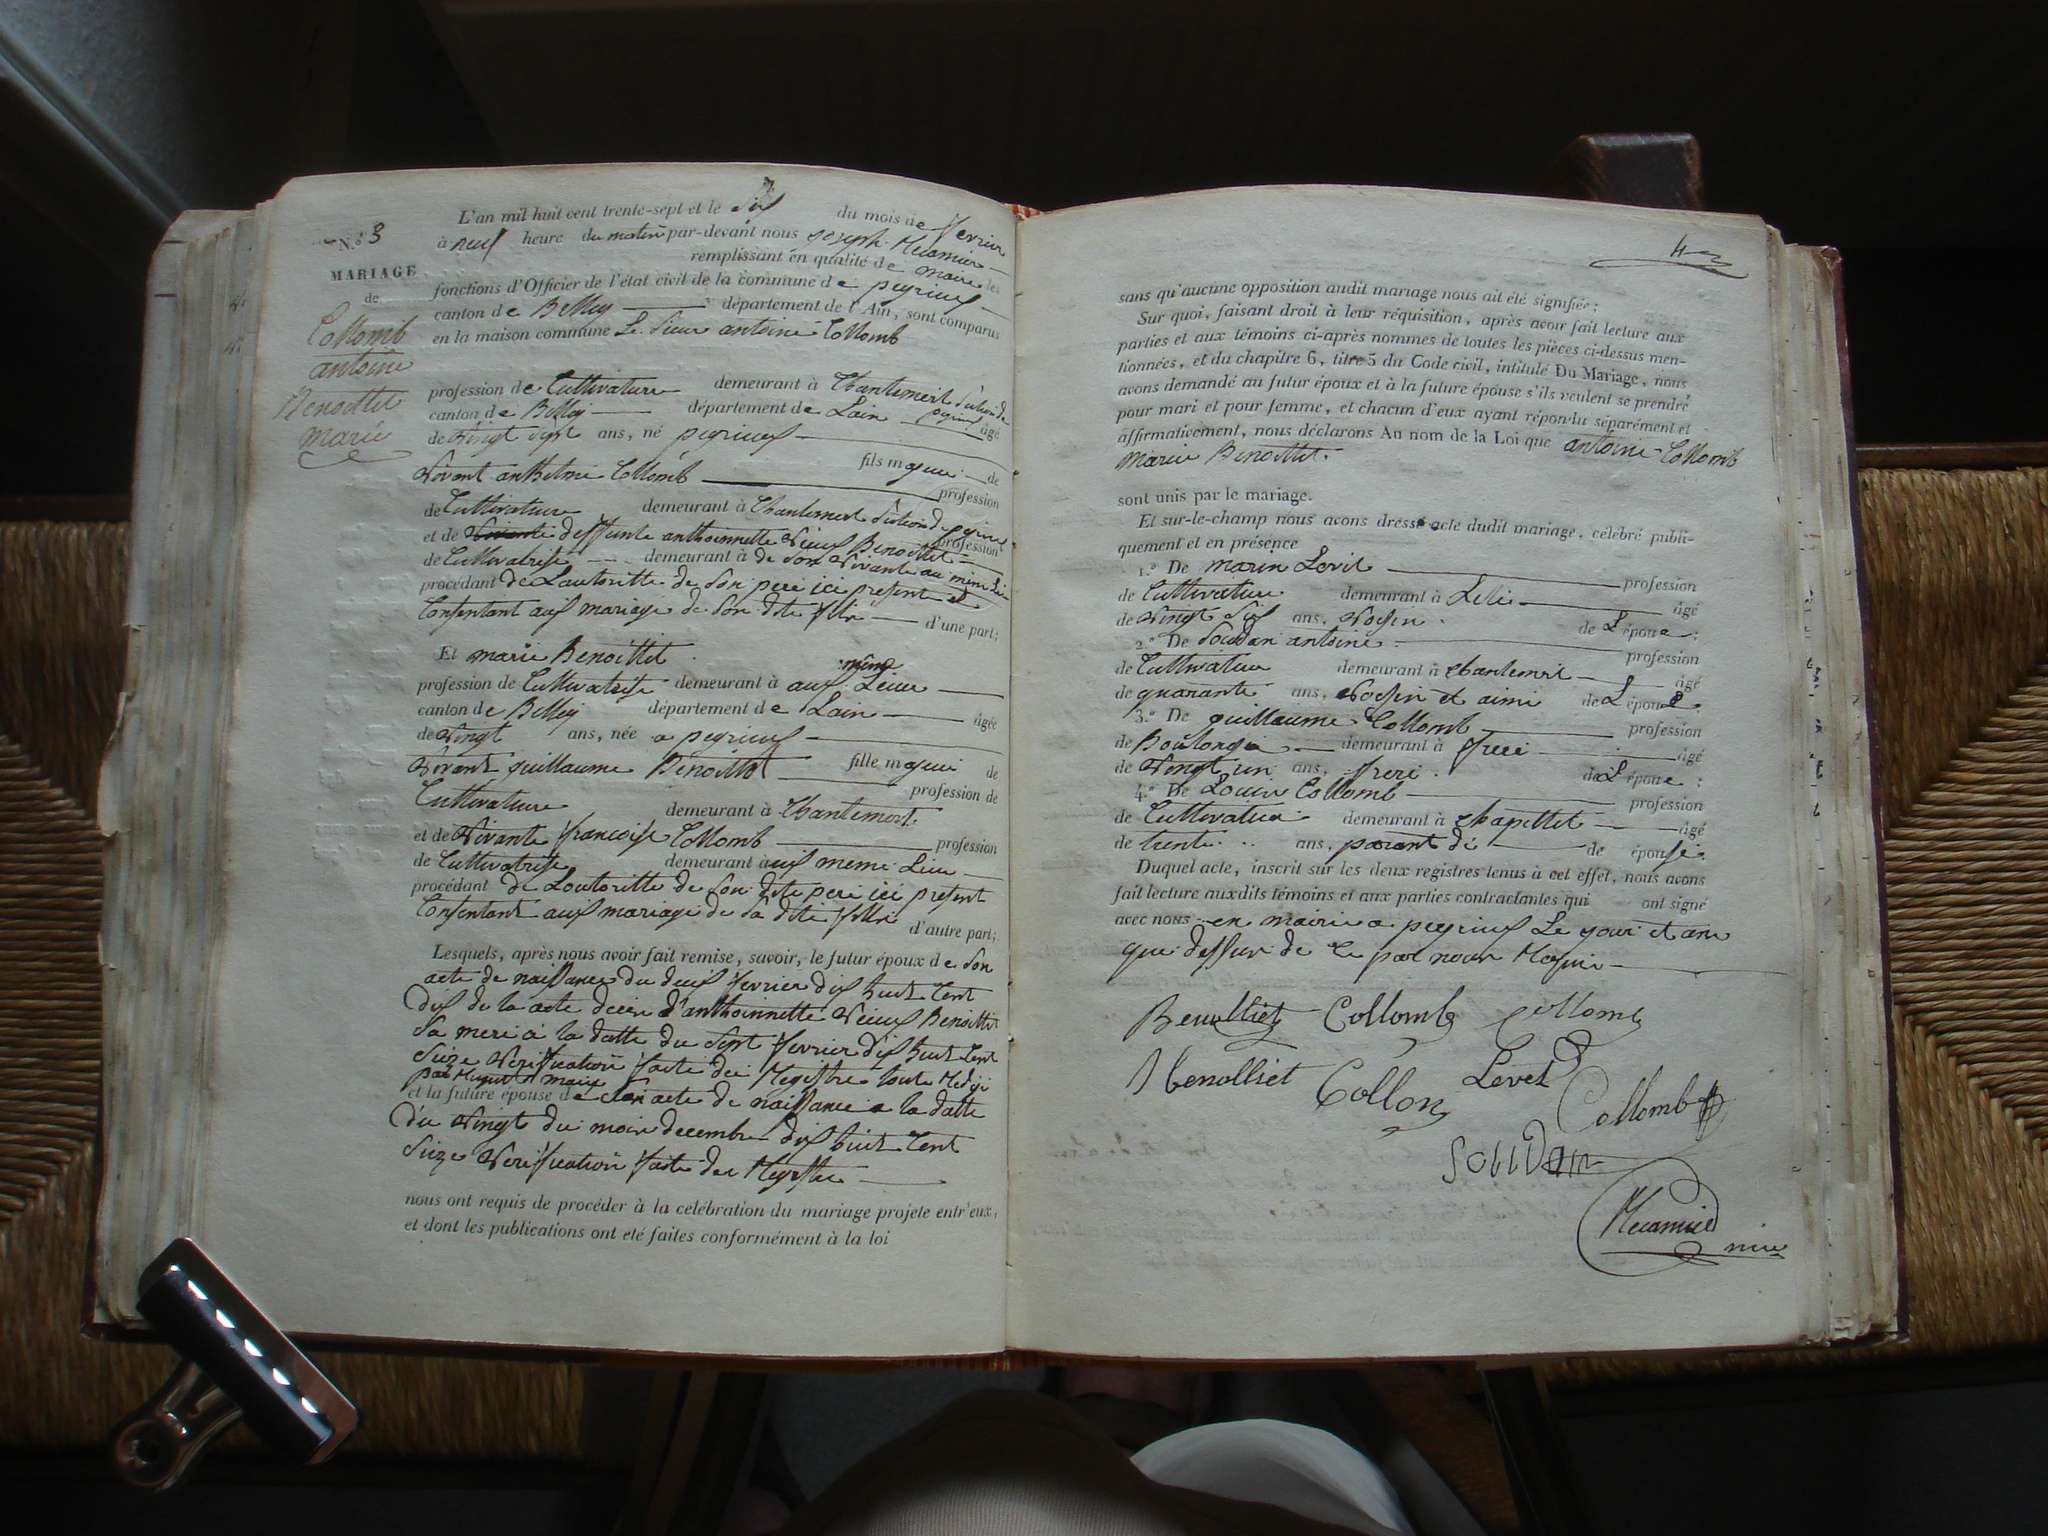 N.º 3
MARIAGE
de
Collomb
antoine
Benoittet
marie
L'an mil huit cent trente-sept et le Six du mois de fevrier
à neuf heure du matin par-devant nous joseph
remplissant en qualité de maire les
fonctions d'Officier de l'état civil de la commune de peyrieux
canton de Belley département de l'Ain, sont comparus
en la maison commune Le Sieur antoine Collomb
profession de Cultivature demeurant à Chantemerl
canton de Belley département de Lain âgé
de vingt Sept ans, né peyrieux
fils majeur de
vivant anthelme Collomb profession
de Cultivature demeurant à Chantemerl
et de vivante deffunte anthoinnette vieux Benoittet profession
de Cultivatrise demeurant à de son vivante au mème Lieu
procédant de Lautoritte de Son pere ici present et
Consentant aux mariage de Son dite fils d'une part;
Et marie Benoittet
profession de Cultivatrise demeurant à aux même Leiux
canton de Belley département de Lain âgée
de vingt ans, née a peyrieux
fille majeur de
vivant guillaume Benoittet profession de
Cultivature demeurant à Chantemort
et de vivante francoise Collomb profession
de Cultivatrise demeurant à aux meme Lieu
procédant de Loutoritte de Son dite pere ici present
Consentant auix mariage de Sa dite fille d'autre part;
Lesquels, après nous avoir fait remise, savoir, le futur époux de Son
acte de naissance du deux fevrier dix huit Cent
dix de la acte deces d'anthoinnette vieux Benoittet
Sa mere à la datte du Sept fevrier dix huit Cent
Seize verification faite dei Registre
par maire
et la future épouse de Son acte de naissance a la datte
du vingt du mois decembre dix huit Cent
Seize verification faite des Registre
nous ont requis de procéder à la celébration du mariage projeté entr'eux,
et dont les publications ont été faites conformément à la loi
4
sans qu'aucune opposition audit mariage nous ait été signifiée;
Sur quoi, faisant droit à leur réquisition, après avoir fait lecture aux
parties et aux témoins ci-après nommés de toutes les pièces ci-dessus men-
tionnées, et du chapitre 6, titre 5 du Code civil, intitulé Du Mariage, nous
avons demandé au futur époux et à la future épouse s'ils veulent se prendre
pour mari et pour femme, et chacun d'eux ayant répondu séparément et
affirmativement, nous déclarons Au nom de la Loi que antoine Collomb
Marie Benoittet.
sont unis par le mariage.
Et sur-le-champ nous avons dressé acte dudit mariage, célébré publi-
quement et en présence
1.º De marin Levet profession
de Cultivature demeurant à âgé
de vingt Six ans, voisin de L'époux;
2.º De Souddan antoine profession
de Cultivature demeurant à Chantemerl âgé
de quarante ans, voisin et aimi de L'époux;
3.º De guillaume Collomb profession
de Boulongé demeurant à âgé
de vingt un ans, frere de L'époux;
4.º De Louis Collomb profession
de Cultivature demeurant à chapittet âgé
de trente ans, parant de de épouse.
Duquel acte, inscrit sur les deux registres tenus à cet effet, nous avons
fait lecture auxdits témoins et aux parties contractantes qui ont signé
avec nous en mairie a peyrieux Le jour et an
que dessus de Ce par nous Requis
Benolliet Collomb Collomb
Benolliet Collon Levet
Collomb
SOUDAN